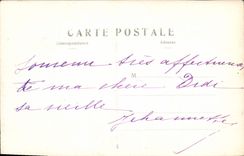 CARTE POSTALE
Correspondance Adresse
Souvenir très affectueux
de ma chère Didi
M
sa vieille
Jehanne